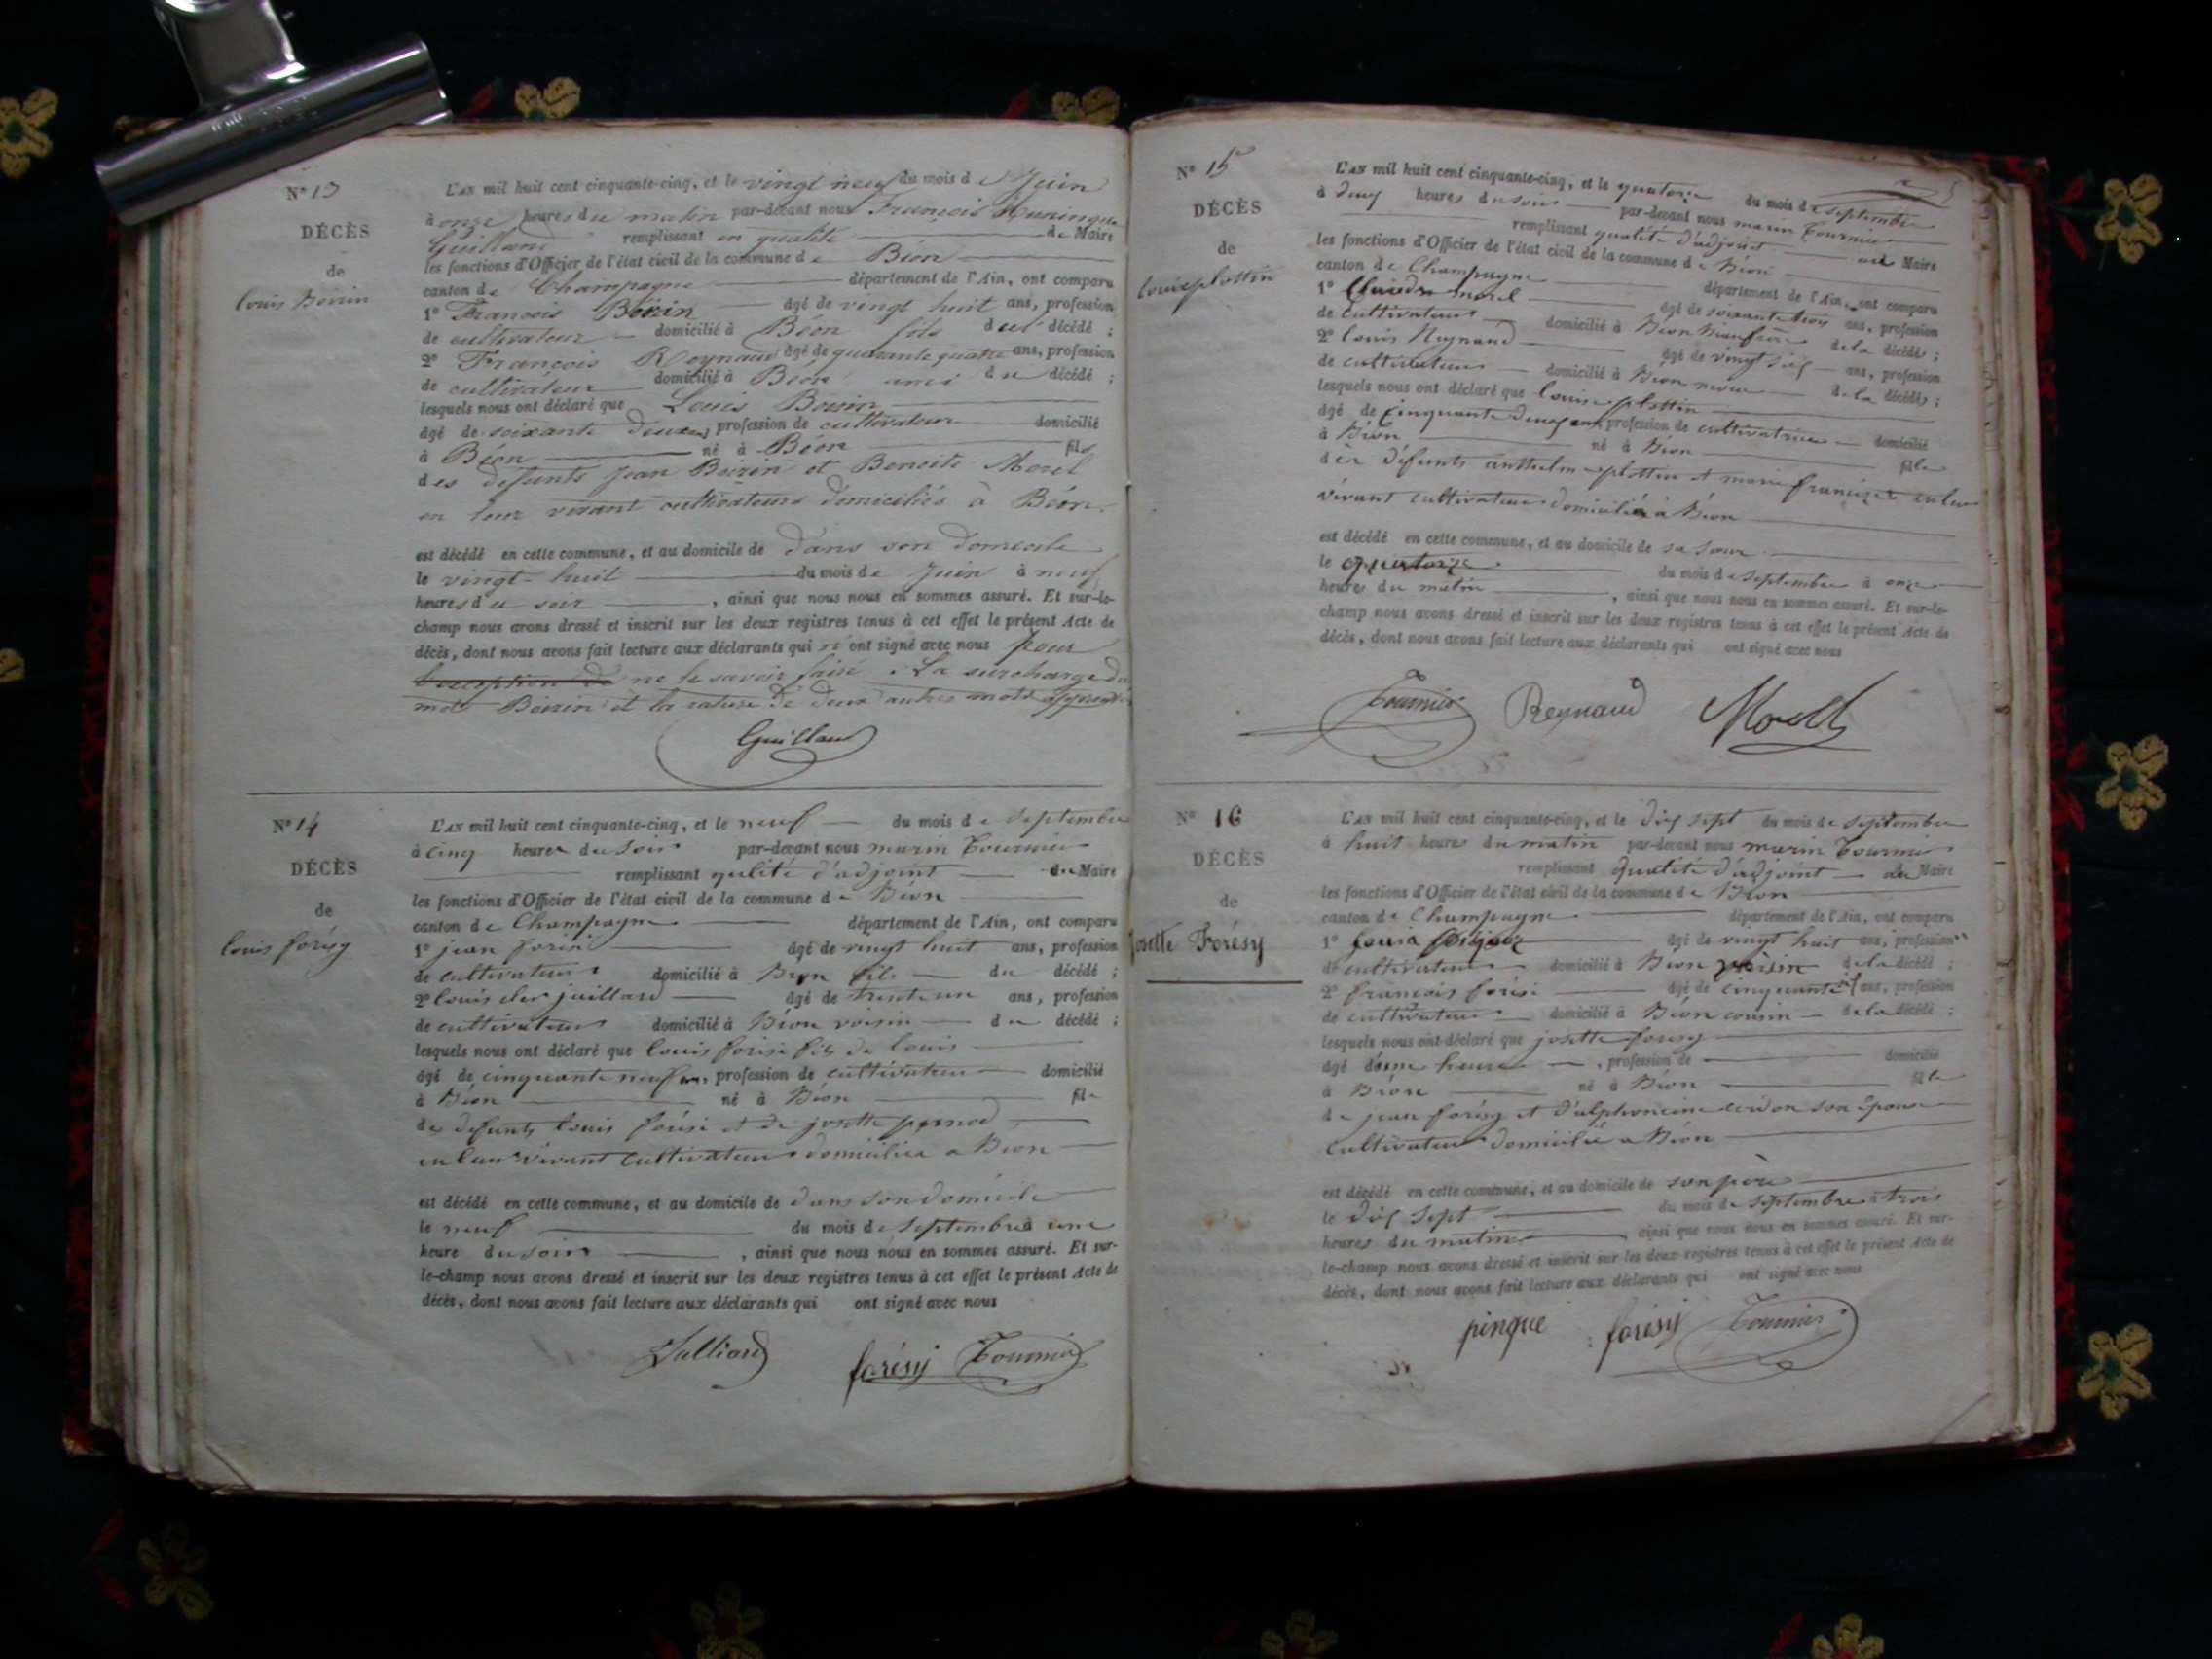 N° 13
DÉCÈS
de
Louis Boirin
L'AN mil huit cent cinquante-cinq, et le vingt neuf du mois de Juin
à onze heures du matin par-devant nous François
Guilland remplissant en qualité de Maire
les fonctions d'Officier de l'état civil de la commune de Béon
canton de Champagne département de l'Ain, ont comparu
1° François Boirin âgé de vingt huit ans, profession
de cultivateur domicilié à Béon fils du décédé ;
2° François Reynaud âgé de quarante quatre ans, profession
de cultivateur domicilié à Béon ami du décédé ;
lesquels nous ont déclaré que Louis Boirin
âgé de soixante deux ans, profession de cultivateur domicilié
à Béon né à Béon fils
des défunts Jean Boirin et Benoite Morel
en leur vivant cultivateurs domiciliés à Béon.
est décédé en cette commune, et au domicile de dans son domicile
le vingt-huit du mois de Juin à neuf
heures du soir , ainsi que nous nous en sommes assuré. Et sur-le-
champ nous avons dressé et inscrit sur les deux registres tenus à cet effet le présent Acte de
décès, dont nous avons fait lecture aux déclarants qui n'ont signé avec nous pour
ne le savoir faire. La surcharge du
mot Boirin et la rature de deux autres mots
Guilland
N° 14
DÉCÈS
de
louis forésy
L'AN mil huit cent cinquante-cinq, et le neuf du mois de Septembre
à cinq heures du soir par-devant nous marin Tournier
remplissant qulité d'adjoint du Maire
les fonctions d'Officier de l'état civil de la commune de Béon
canton de Champagne département de l'Ain, ont comparu
1° jean forisi âgé de vingt huit ans, profession
de cultivateur domicilié à Béon fils du décédé ;
2° louis juillard âgé de trente un ans, profession
de cultivateur domicilié à Béon voisin du décédé ;
lesquels nous ont déclaré que louis forisi fils de louis
âgé de cinquante neuf ans, profession de cultivateur domicilié
à Béon né à Béon fils
des défunts louis forisi et de josette pernod
en leur vivant cultivateurs domiciliés a Béon
est décédé en cette commune, et au domicile de dans son domicile
le neuf du mois de Septembre à une
heure du soir , ainsi que nous nous en sommes assuré. Et sur-
le-champ nous avons dressé et inscrit sur les deux registres tenus à cet effet le présent Acte de
décès, dont nous avons fait lecture aux déclarants qui ont signé avec nous
Julliard forésy Tournier
N° 15
DÉCÈS
de
louise plottin
L'AN mil huit cent cinquante-cinq, et le quatorze du mois de septembre
à deux heures du soir par-devant nous marin Tournier
remplissant qualité d'adjoint au Maire
les fonctions d'Officier de l'état civil de la commune de Béon
canton de Champagne département de l'Ain, ont comparu
1° morel âgé de soixante trois ans, profession
de cultivateur domicilié à Béon beaufrère de la décédé ;
2° louis Reynaud âgé de vingt six ans, profession
de cultivateur domicilié à Béon neveu de la décédé ;
lesquels nous ont déclaré que louise plottin
âgé de cinquante deux ans profession de cultivatrice domicilié
à Béon né à Béon fille
des défunts anthelme plottin et marie en leur
vivant cultivateurs domiciliés à Béon
est décédé en cette commune, et au domicile de sa soeur
le quatorze du mois de Septembre à onze
heures du matin , ainsi que nous nous en sommes assuré. Et sur-le-
champ nous avons dressé et inscrit sur les deux registres tenus à cet effet le présent Acte de
décès, dont nous avons fait lecture aux déclarants qui ont signé avec nous
Tournier Reynaud Morell
N° 16
DÉCÈS
de
Josette Forésy
L'AN mil huit cent cinquante-cinq, et le dix sept du mois de septembre
à huit heures du matin par-devant nous marin Tournier
remplissant qualité d'adjoint au Maire
les fonctions d'Officier de l'état civil de la commune de Béon
canton de Champagne département de l'Ain, ont comparu
1° âgé de vingt huit ans, profession
de cultivateur domicilié à Béon voisin de la décédé ;
2° francois forisi âgé de cinquante ans, profession
de cultivateur domicilié à Béon cousin de la décédé ;
lesquels nous ont déclaré que josette foresy
âgé d'une heure , profession de domicilié
à Béon né à Béon fille
de jean forésy et d'alphoncine cerdon son épouse
cultivateurs domiciliés a Béon
est décédé en cette commune, et au domicile de son père
le dix sept du mois de septembre à trois
heures du matin , ainsi que nous nous en sommes assuré. Et sur-
le-champ nous avons dressé et inscrit sur les deux registres tenus à cet effet le présent Acte de
décès, dont nous avons fait lecture aux déclarants qui ont signé avec nous
pinque forésy Tournier